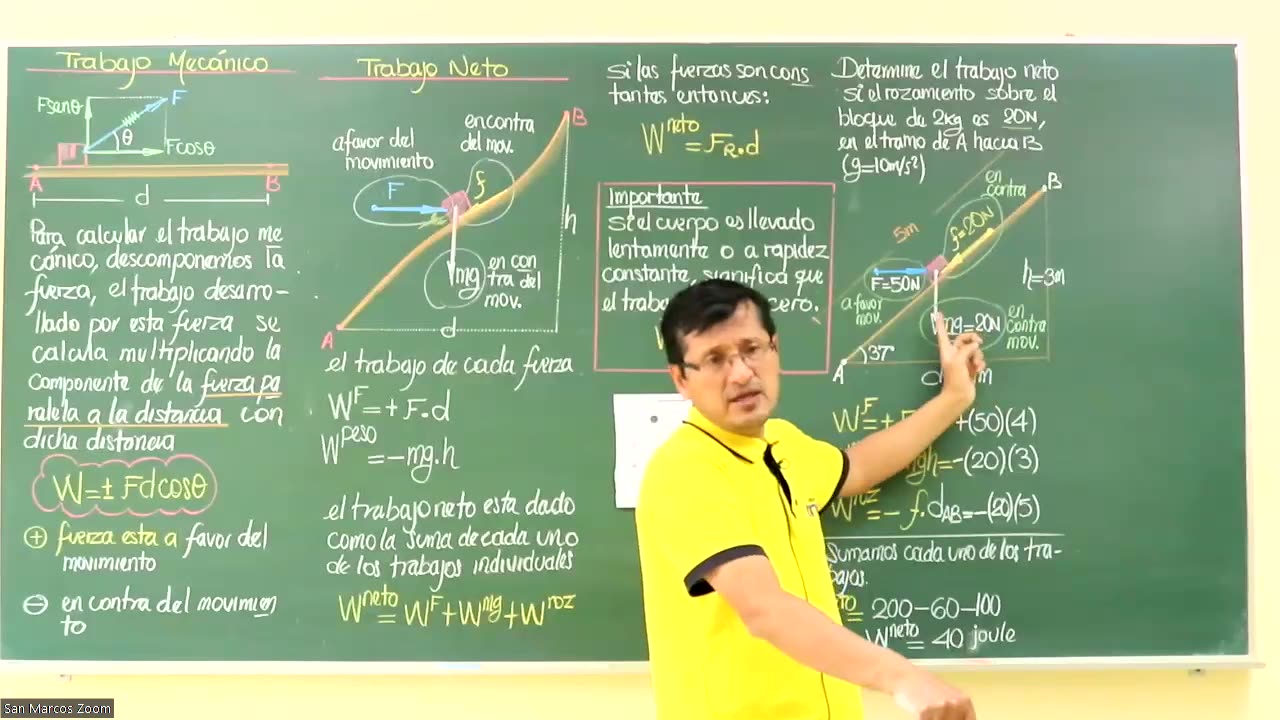 Trabajo Mecánico
Fsenθ
F
θ
Fcosθ
A
B
d
Para calcular el trabajo me
cánico, descomponemos la
fuerza, el trabajo desarro-
llado por esta fuerza se
calcula multiplicando la
componente de la fuerza pa
ralela a la distancia con
dicha distancia
W=± Fdcosθ
⊕ fuerza esta a favor del
movimiento
⊖ en contra del movimien
to
Trabajo Neto
a favor del
movimiento
en contra
del mov.
B
F
f
h
mg
en con
tra del
mov.
A
d
el trabajo de cada fuerza
W^F=+F.d
W^peso=-mg.h
el trabajo neto esta dado
como la suma de cada uno
de los trabajos individuales
W^neto=W^F+W^mg+W^roz
si las fuerzas son cons
tantes entonces:
W^neto=F_R.d
Importante
si el cuerpo es llevado
lentamente o a rapidez
constante, significa que
el cero.
Determine el trabajo neto
si el rozamiento sobre el
bloque de 2kg es 20N,
en el tramo de A hacia B
(g=10m/s²)
en
contra
B
5m
f=20N
F=50N
h=3m
a favor
mov.
mg=20N
en
contra
mov.
37°
A
m
W^F=+ +(50)(4)
gh=-(20)(3)
W^roz=-f.d_AB=-(20)(5)
sumamos cada uno de los tra-
bajos.
= 200-60-100
W^neto=40 joule
San Marcos Zoom